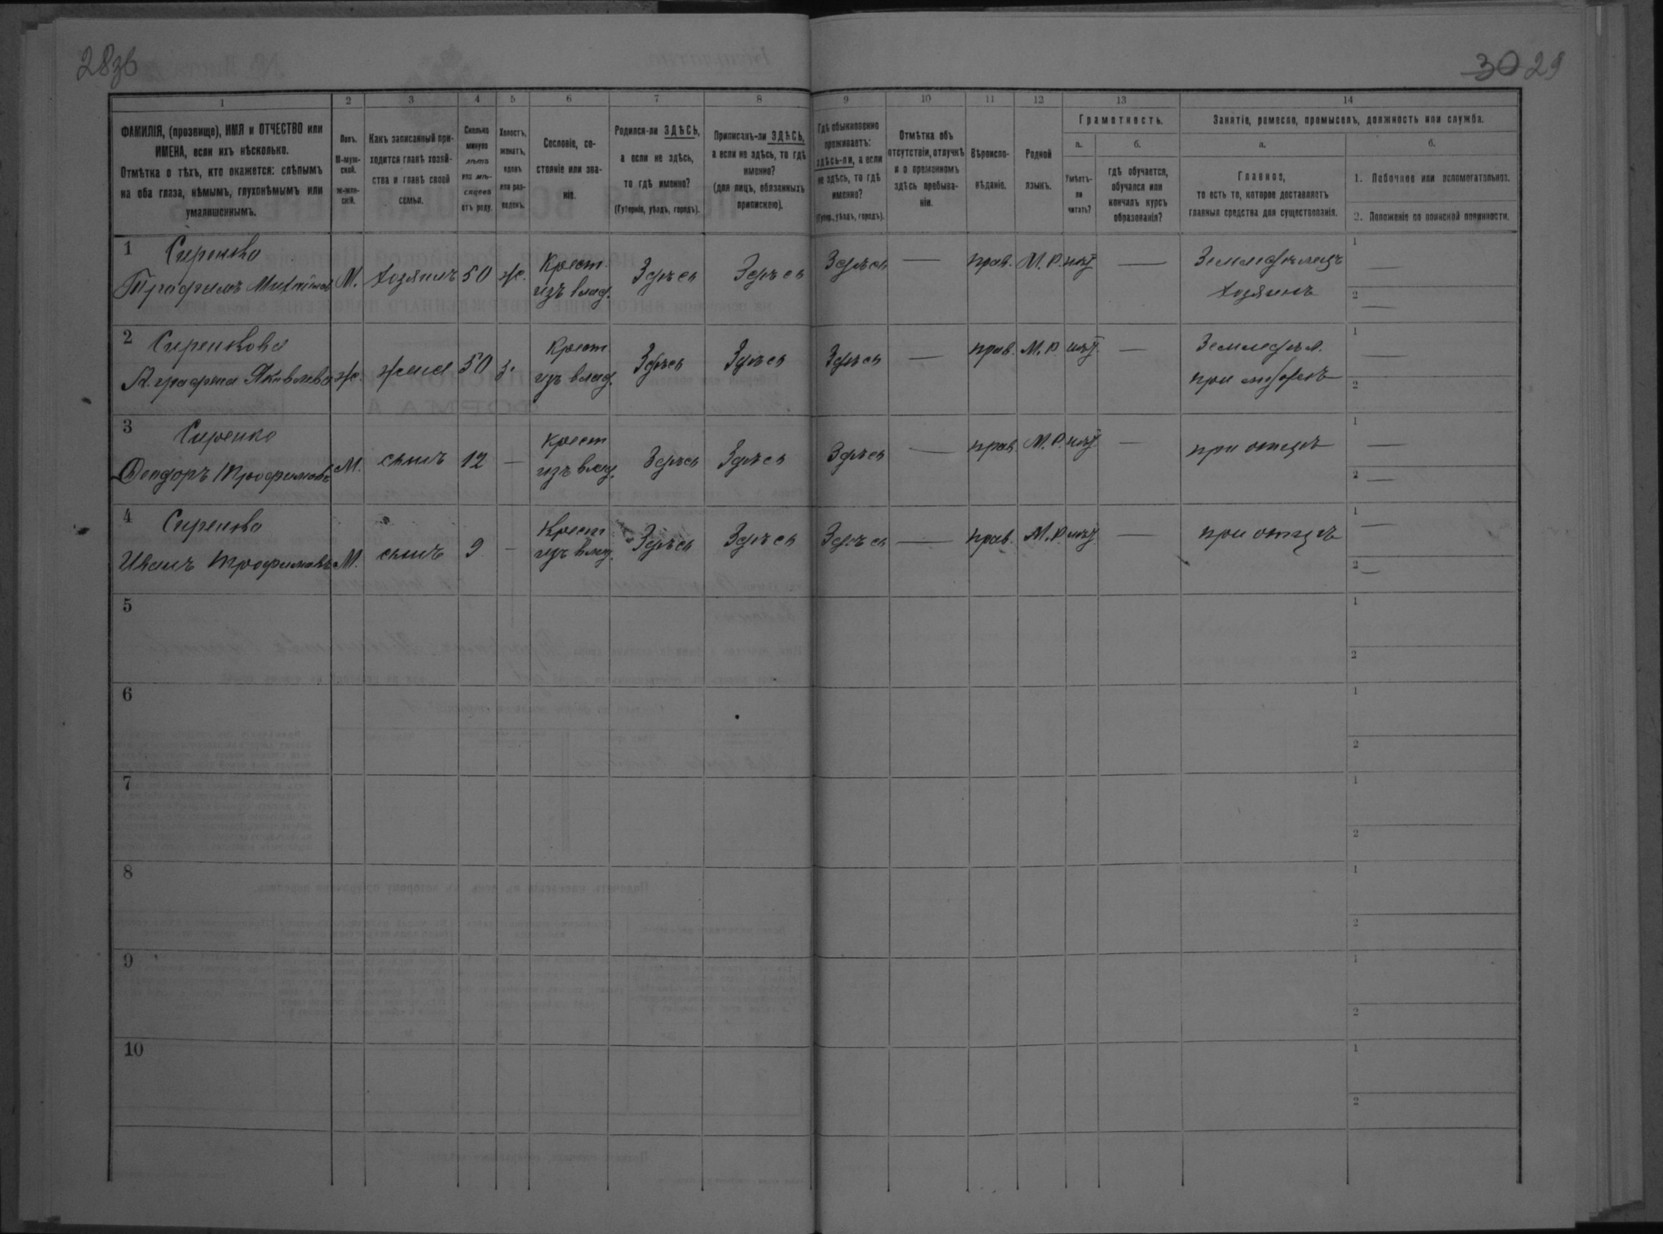 28зв
30 29
1 2 3 4 5 6 7 8 9 10 11 12 13 14
ФАМИЛІЯ, (прозвище), ИМЯ и ОТЧЕСТВО или ИМЕНА, если ихъ нѣсколько.
Отмѣтка о тѣхъ, кто окажется: слѣпымъ на оба глаза, нѣмымъ, глухонѣмымъ или умалишеннымъ.
Полъ.
М-муж-
ской.
Ж-жен-
скій.
Какъ записанный при-
ходится главѣ хозяй-
ства и главѣ своей
семьи.
Сколько
минуло
лѣтъ
или мѣ-
сяцевъ
отъ роду.
Холостъ,
женатъ,
вдовъ
или раз-
веденъ.
Сословіе, со-
стояніе или зва-
ніе.
Родился-ли ЗДѢСЬ,
а если не здѣсь,
то гдѣ именно?
(Губернія, уѣздъ, городъ).
Приписанъ-ли ЗДѢСЬ,
а если не здѣсь, то гдѣ
именно?
(для лицъ, обязанныхъ
припискою).
Гдѣ обыкновенно
проживаетъ:
здѣсь-ли, а если
не здѣсь, то гдѣ
именно?
(Губер., уѣздъ, городъ).
Отмѣтка объ
отсутствіи, отлучкѣ
и о временномъ
здѣсь пребыва-
ніи.
Вѣроиспо-
вѣданіе.
Родной
языкъ.
Грамотность.
а.
Умѣетъ-
ли
читать?
б.
гдѣ обучается,
обучался или
кончилъ курсъ
образованія?
Занятіе, ремесло, промыселъ, должность или служба.
а.
Главное,
то есть то, которое доставляетъ
главныя средства для существованія.
б.
1. Побочное или вспомогательное.
2. Положеніе по воинской повинности.
1 Сиренко Крест. Земледѣлецъ 1 —
Трофимъ М. хозяинъ 50 ж. изъ влад. Здѣсь Здѣсь Здѣсь — прав. М.Р. нѣт — хозяинъ 2 —
2 Сиренкова Крест. Земледѣл. 1 —
Аграфена Яковлева ж. жена 50 з. изъ влад. Здѣсь Здѣсь Здѣсь — прав. М.Р. нѣт — при мужѣ 2
3 Сиренко Крест. 1 —
Феодоръ Трофимовъ М. сынъ 12 — изъ влад. Здѣсь Здѣсь Здѣсь — прав. М.Р. нѣт — при отцѣ 2 —
4 Сиренко Крест. 1 —
Иванъ Трофимовъ М. сынъ 9 — изъ влад. Здѣсь Здѣсь Здѣсь — прав. М.Р. нѣт — при отцѣ 2 —
5 1
2
6 1
2
7 1
2
8 1
2
9 1
2
10 1
2